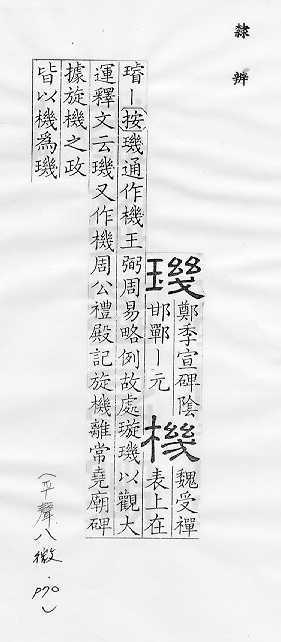 隸辨
璣
鄭季宣碑陰
邯鄲｜元
機
魏受禪
表上在
璿｜(按)璣通作機王弼周易略例故處璇璣以觀大
運釋文云璣又作機周公禮殿記旋機離常堯廟碑
據旋機之政
皆以機為璣
(平聲八微．P70)